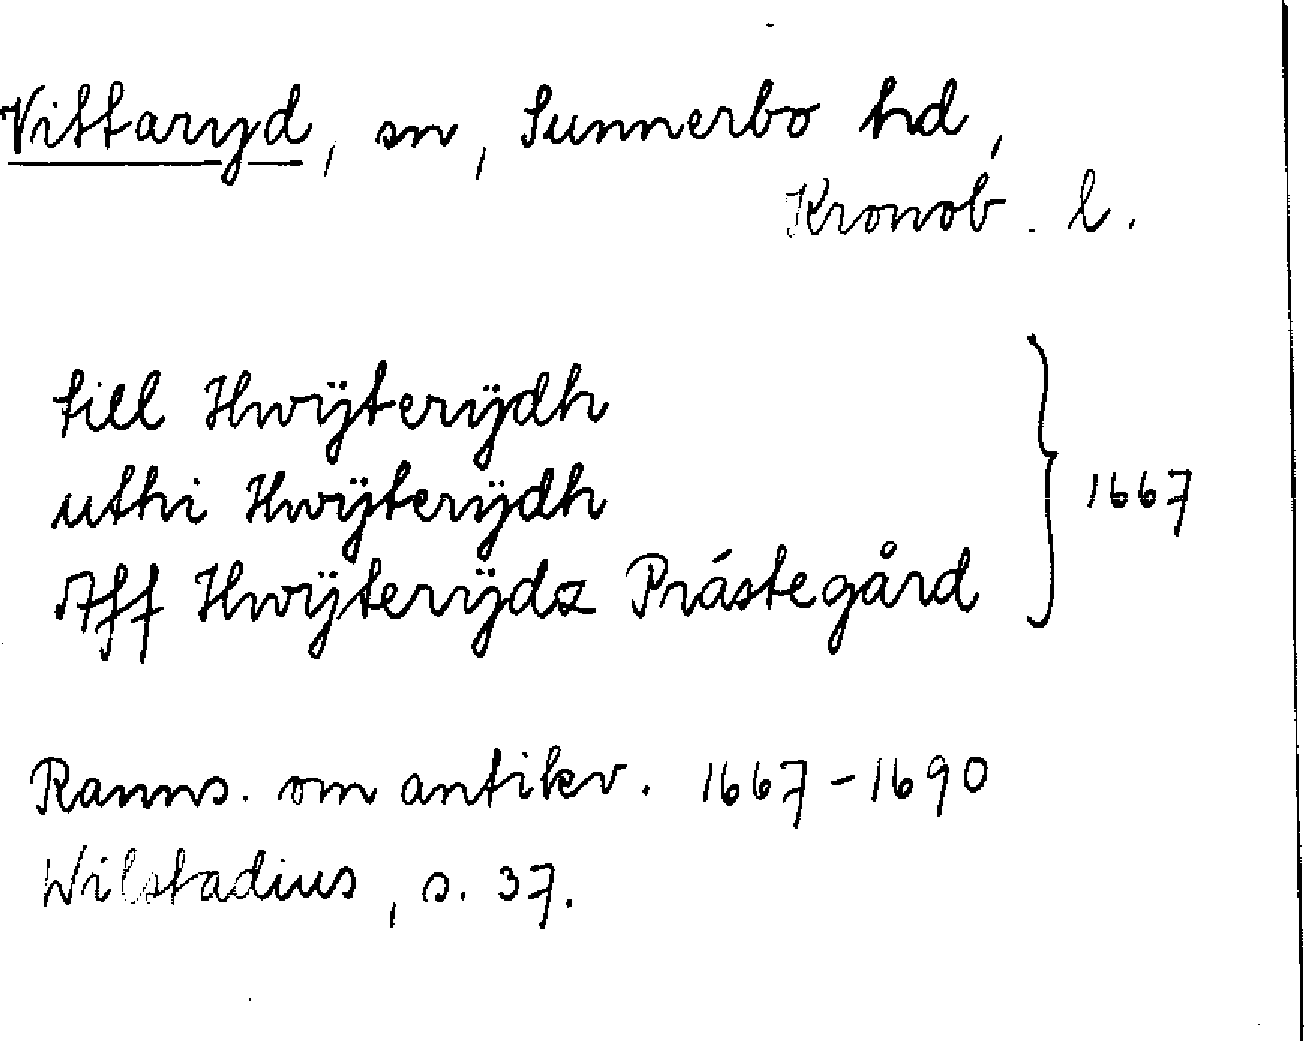 Vittaryd, sn, Sunnerbo hd,
Kronob. l.
till Hwÿterÿdh
uthi Hwÿterÿdh
Aff Hwÿterÿdz Prástegård
1667
Ranns. om antikv. 1667-1690
Wilstadius, s. 37.